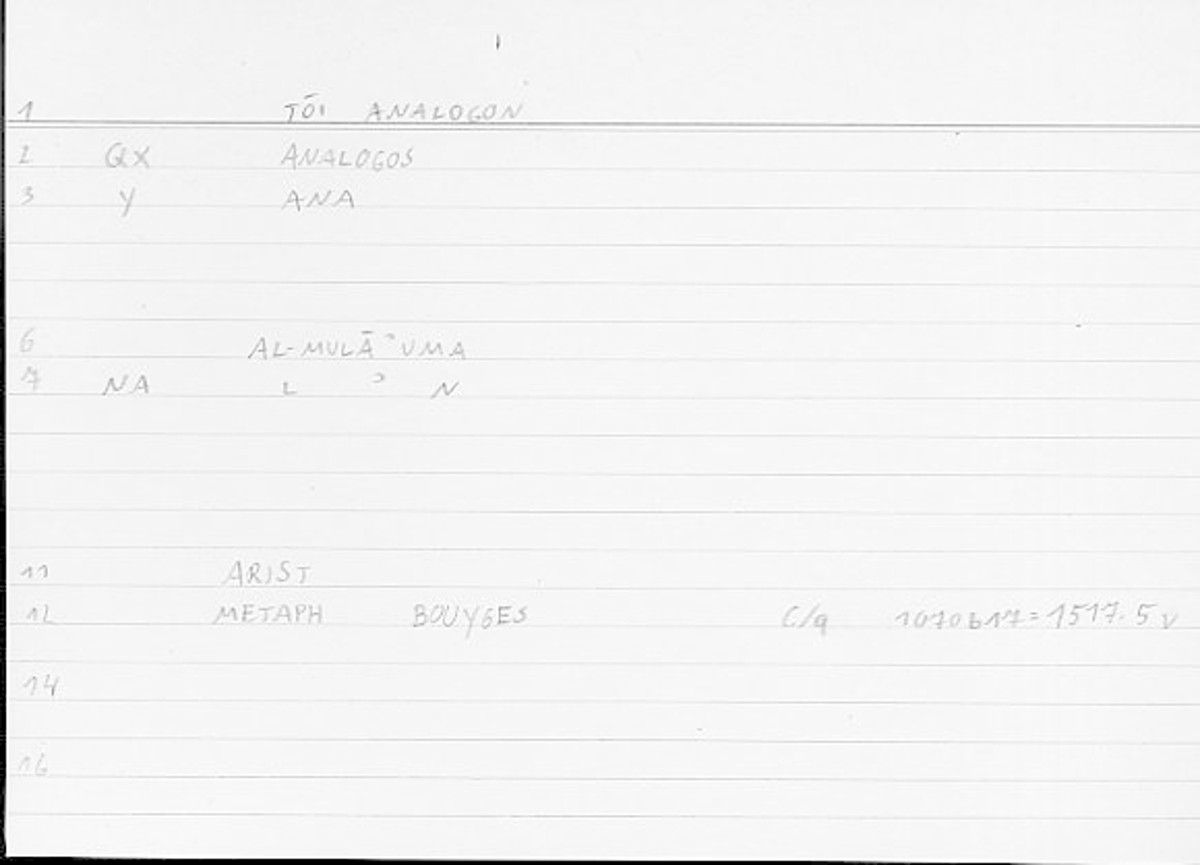 1 TŌI ANALOGON
2 QX ANALOGOS
3 Y ANA
6 AL-MULĀʾUMA
7 NA L ʾ N
11 ARIST
12 METAPH BOUYGES C/q 1070b17=1517.5 v
14
16